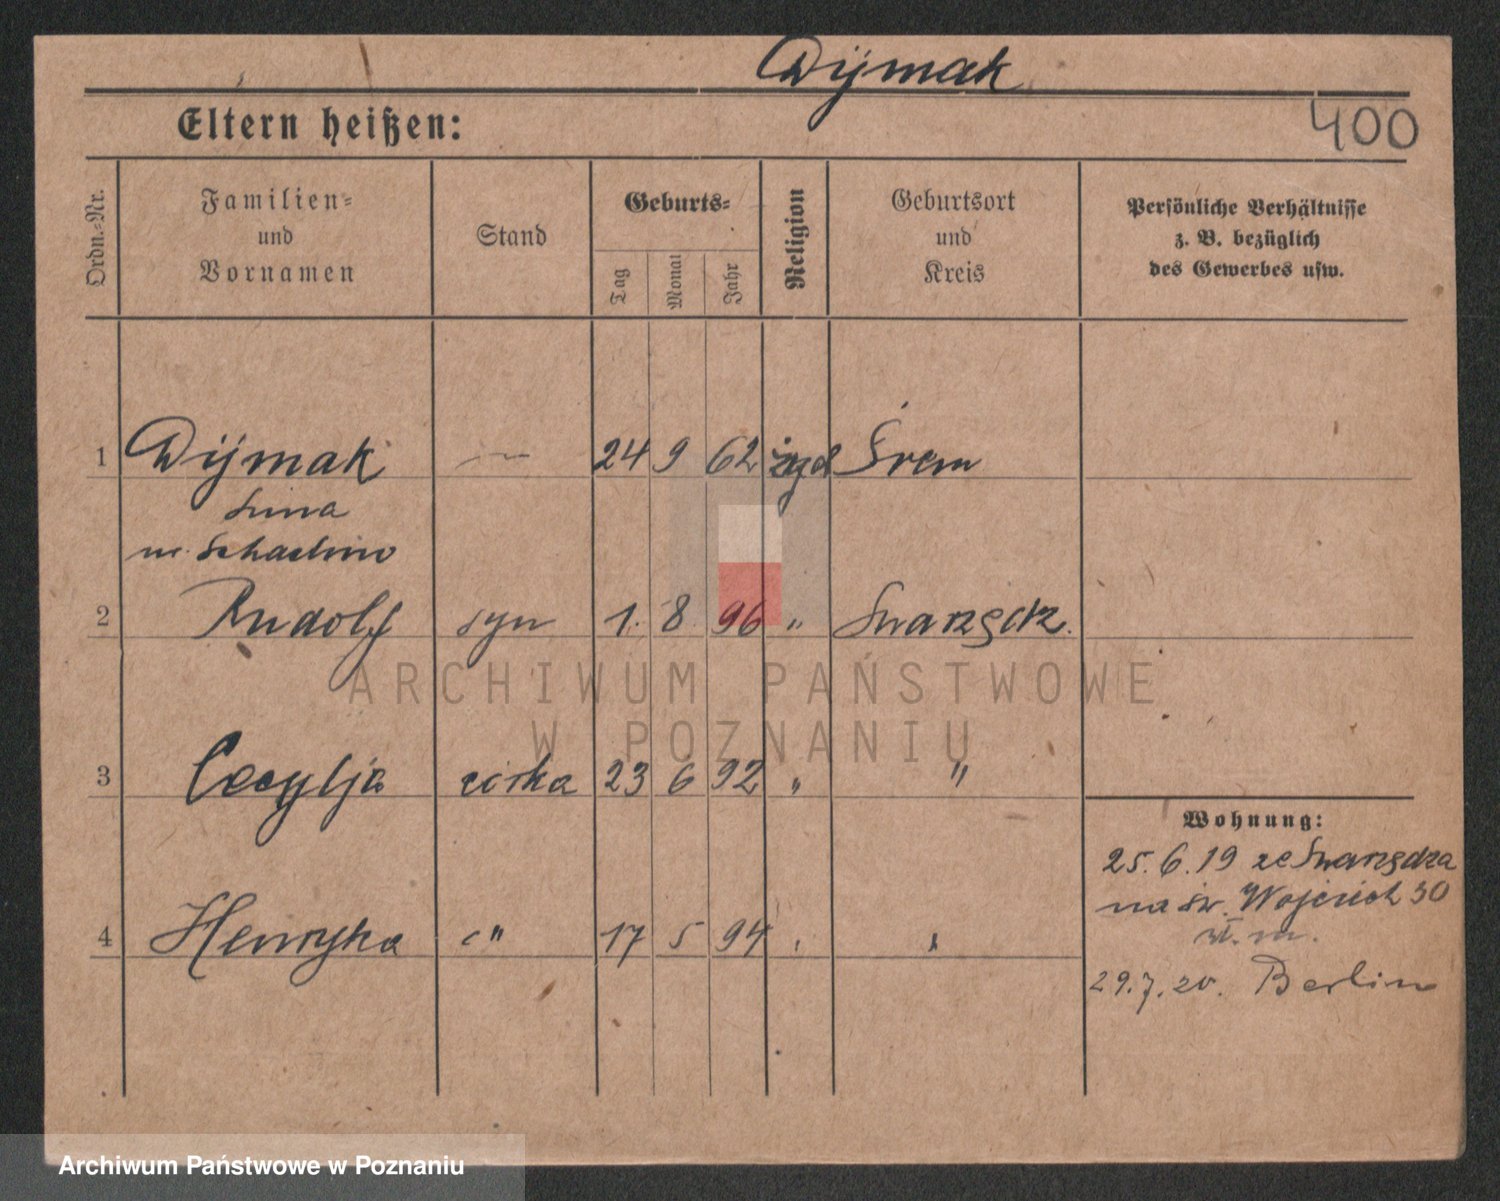 Dijmak
400
Eltern heißen:
Ordn.-Nr.
Familien-
und
Vornamen
Stand
Geburts-
Tag
Monat
Jahr
Religion
Geburtsort
und
Kreis
Persönliche Verhältnisse
z. B. bezüglich
des Gewerbes usw.
1 Dijmak — 24 9 62 żyd Śrem
2 Rudolf syn 1. 8 96 " Swarzędz.
3 Cecylja córka 23 6 92 " "
4 Henryka " 17 5 94
Wohnung:
25.6.19 ze Swarzędza
na św. Wojciech 30
29.7.20. Berlin
ARCHIWUM PAŃSTWOWE
W POZNANIU
Archiwum Państwowe w Poznaniu